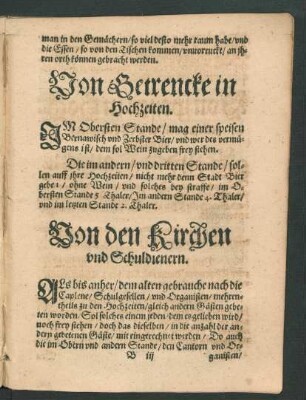 man in den Gemächern/ so viel desto mehr raum habe/ vnd
die Essen/ so von den Tischen kommen/ vnuorruckt/ an jh-
ren orth können gebracht werden.
Von Getrencke in
Hochzeiten.
IM Obersten Stande/ mag einer speisen
Bernawisch vnd Zerbster Bier/ vnd wer des vermü-
gens ist/ dem sol Wein zugeben frey stehen.
Die im andern/ vnd dritten Stande/ sol-
len auff jhre Hochzeiten/ nicht mehr denn Stadt Bier
geben/ ohne Wein/ vnd solches bey straffe/ im O-
bersten Stande 5 Thaler/ Im andern Stande 4. Thaler/
vnd im letzten Stande 2. Thaler.
Von den Kirchen
vnd Schuldienern.
ALs bis anher/ dem alten gebrauche nach die
Caplene/ Schulgesellen/ vnd Organisten/ mehren-
theils zu den Hochzeiten/ gleich andern Gästen gebe-
ten worden. Sol solches einem jeden/ dem es gelieben wird/
noch frey stehen/ doch das dieselben/ in die anzahl der an-
dern gebetenen Gäste/ mit eingerechnet werden/ Do auch
die im Obern vnd andern Stande/ den Cantorn vnd Or-
B iij
ganisten/